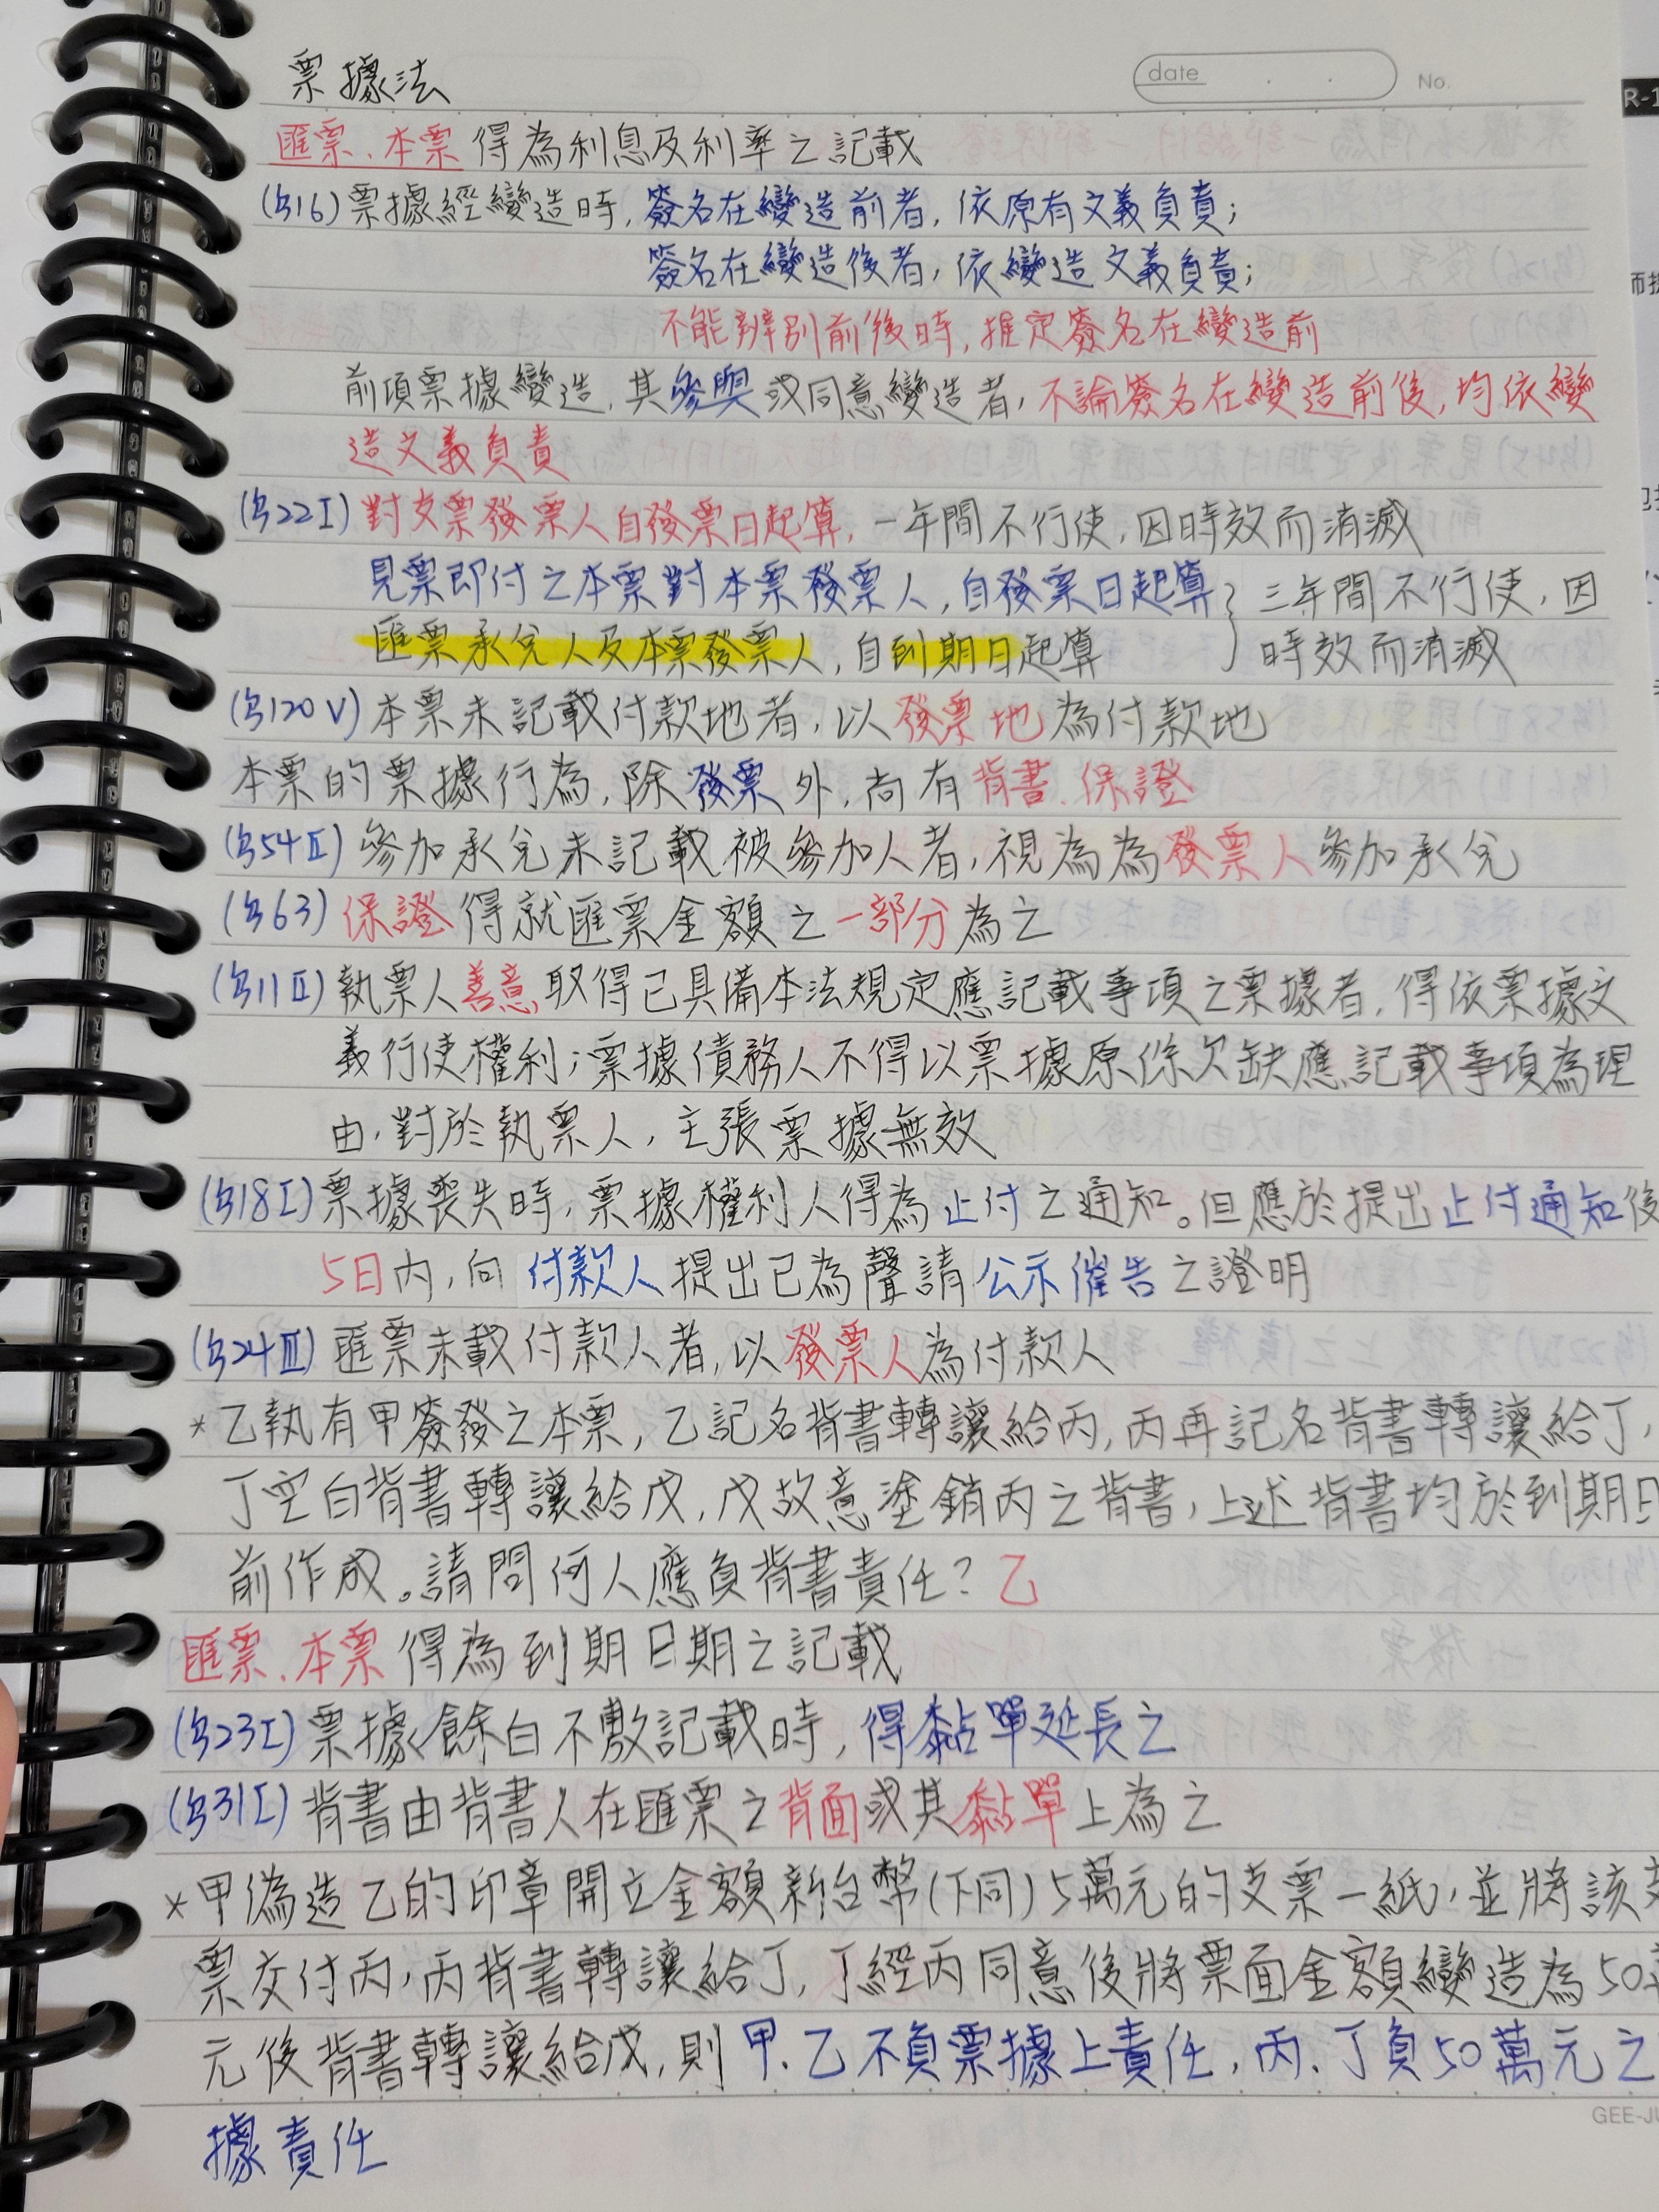 票據法
date . . No.
匯票、本票 得為利息及利率之記載
(§16) 票據經變造時, 簽名在變造前者, 依原有文義負責;
簽名在變造後者, 依變造文義負責;
不能辨別前後時, 推定簽名在變造前
前項票據變造, 其參與或同意變造者, 不論簽名在變造前後, 均依變
造文義負責
(§22I) 對支票發票人自發票日起算, 一年間不行使, 因時效而消滅
見票即付之本票對本票發票人, 自發票日起算 } 三年間不行使, 因
匯票承兌人及本票發票人, 自到期日起算 } 時效而消滅
(§120V) 本票未記載付款地者, 以發票地為付款地
本票的票據行為, 除發票外, 尚有背書、保證
(§54II) 參加承兌未記載被參加人者, 視為為發票人參加承兌
(§63) 保證得就匯票金額之一部分為之
(§11II) 執票人善意取得已具備本法規定應記載事項之票據者, 得依票據文
義行使權利; 票據債務人不得以票據原係欠缺應記載事項為理
由, 對於執票人, 主張票據無效
(§18I) 票據喪失時, 票據權利人得為止付之通知。但應於提出止付通知後
5日內, 向付款人提出已為聲請公示催告之證明
(§24III) 匯票未載付款人者, 以發票人為付款人
*乙執有甲簽發之本票, 乙記名背書轉讓給丙, 丙再記名背書轉讓給丁,
丁空白背書轉讓給戊, 戊故意塗銷丙之背書, 上述背書均於到期日
前作成。請問何人應負背書責任? 乙
匯票、本票得為到期日期之記載
(§23I) 票據餘白不敷記載時, 得黏單延長之
(§31I) 背書由背書人在匯票之背面或其黏單上為之
*甲偽造乙的印章開立金額新台幣(下同)5萬元的支票一紙, 並將該支
票交付丙, 丙背書轉讓給丁, 丁經丙同意後將票面金額變造為50萬
元後背書轉讓給戊, 則甲、乙不負票據上責任, 丙、丁負50萬元之
據責任
GEE-JU
R-1